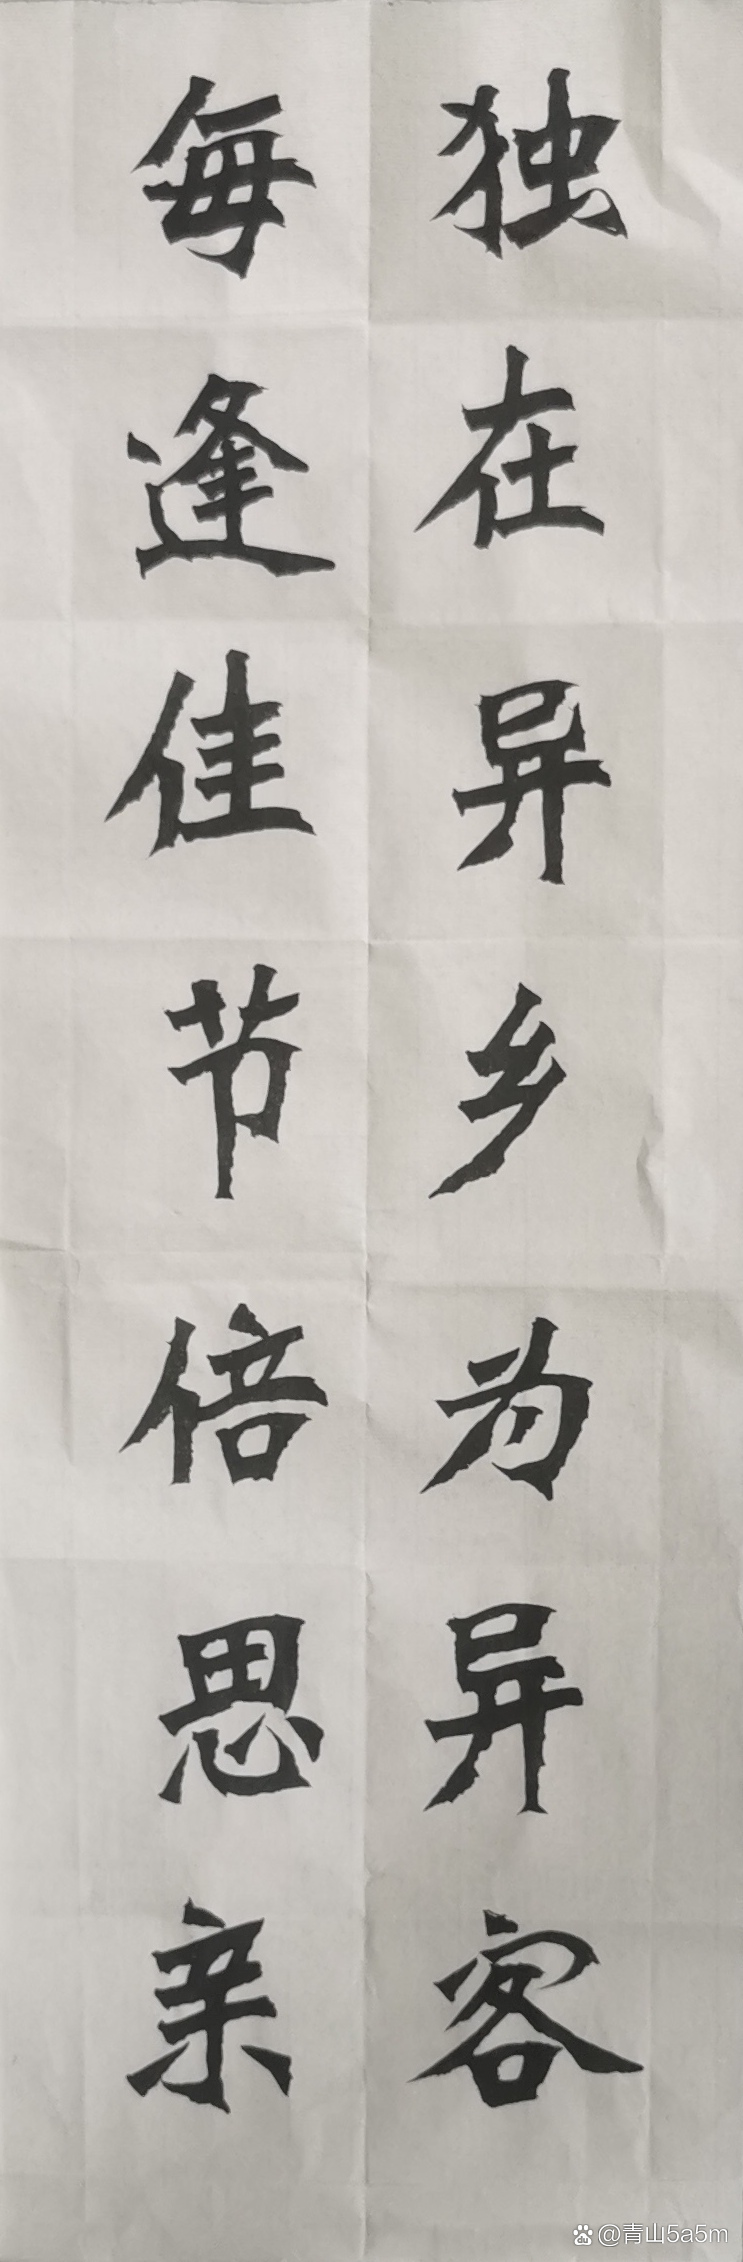 独在异乡为异客
每逢佳节倍思亲
@青山5a5m